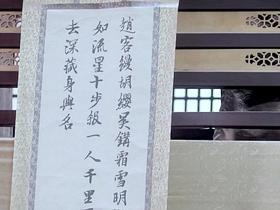 趙客縵胡纓吳鉤霜雪明
如流星十步殺一人千里不
去深藏身與名